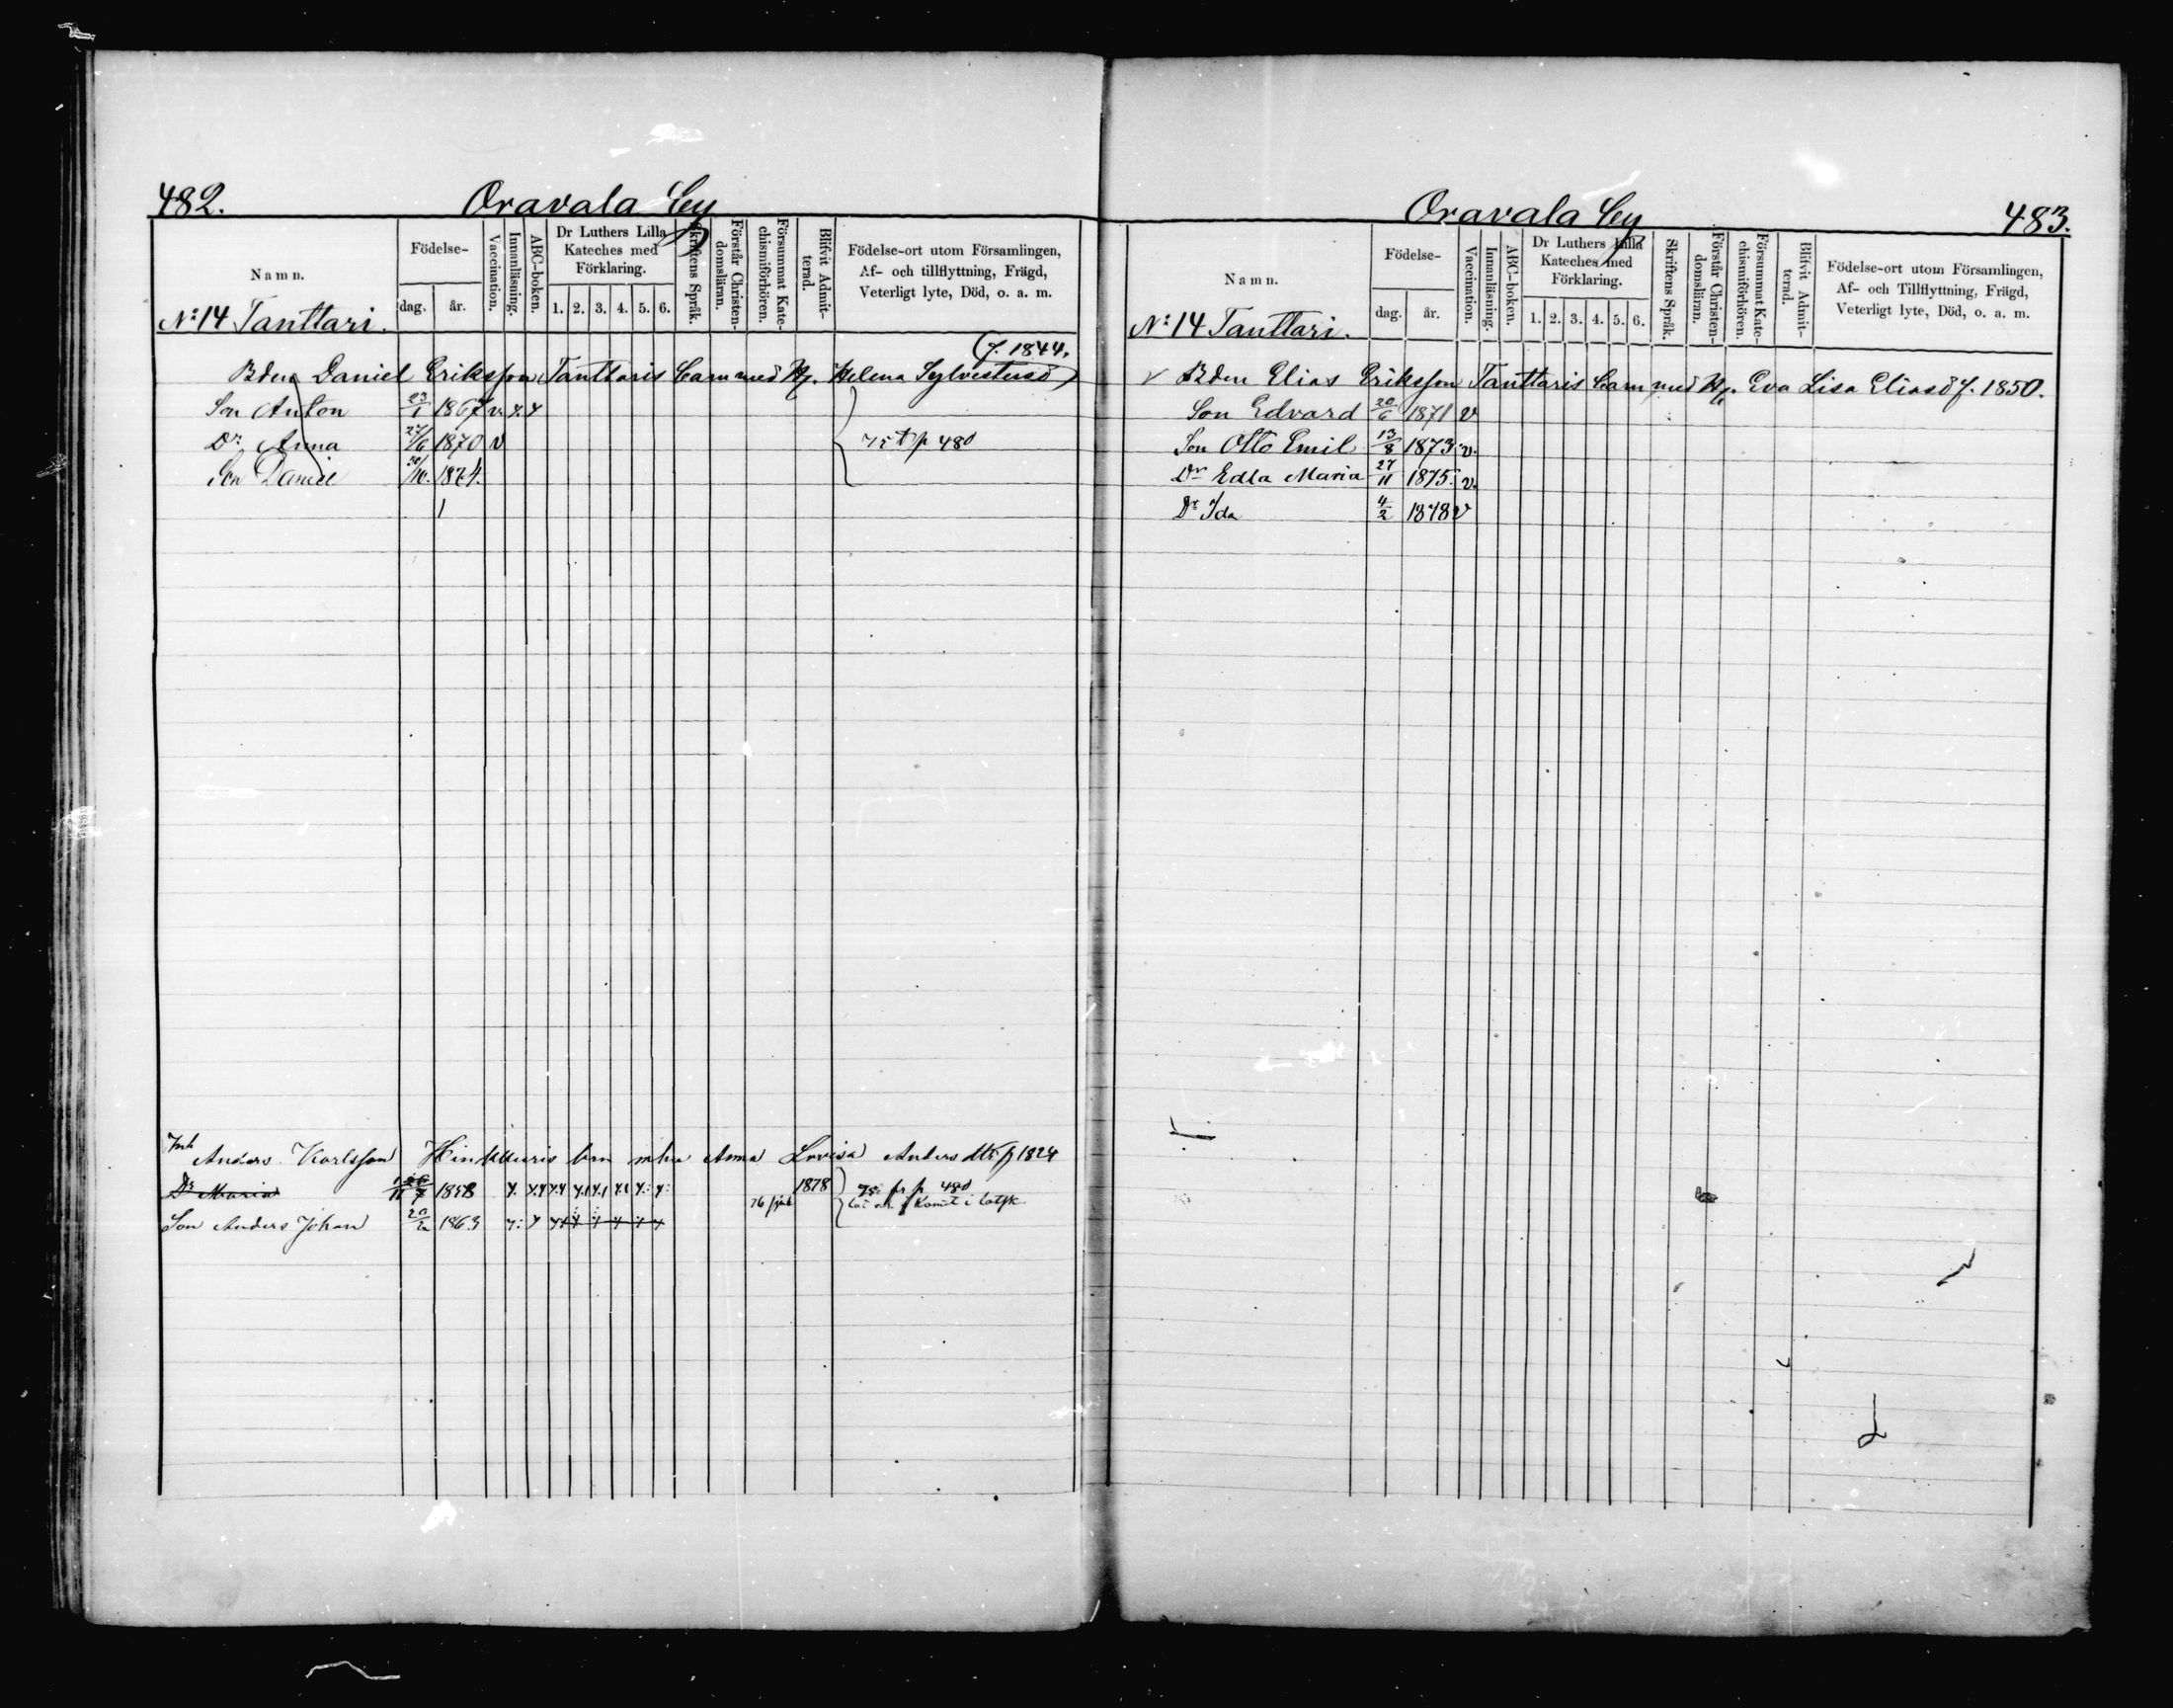 482. Oravala by
Namn.
Födelse-
dag. år.
Vaccination.
Innanläsning.
ABC-boken.
Dr Luthers Lilla
Kateches med
Förklaring.
1. 2. 3. 4. 5. 6.
Skriftens Språk.
Förstår Christen-
domsläran.
Försummat Kate-
chismiförhören.
Blifvit Admit-
terad.
Födelse-ort utom Församlingen,
Af- och tillflyttning, Frägd,
Veterligt lyte, Död, o. a. m.
No: 14 Tanttari.
f. 1844.
Bden Daniel Eriksson Tanttaris barn med Hu. Helena Sylvestersd
Son Anton 23/1 1867 v.
Dr. Anna 27/6 1870 v 75 tr p 480
Son Daniel 30/10. 1874.
Inh Anders Karlsson Hinkkuris brn mhu Anna Lovisa Anders dtr f 1824
Dr Maria 1858 1878 75 fr p 480
Son Anders Johan 20/2 1863
Oravala by 483.
Namn.
Födelse-
dag. år.
Vaccination.
Innanläsning.
ABC-boken.
Dr Luthers Lilla
Kateches med
Förklaring.
1. 2. 3. 4. 5. 6.
Skriftens Språk.
Förstår Christen-
domsläran.
Försummat Kate-
chismiförhören.
Blifvit Admit-
terad.
Födelse-ort utom Församlingen,
Af- och Tillflyttning, Frägd,
Veterligt lyte, Död, o. a. m.
No: 14 Tanttari.
v Bden Elias Eriksson Tanttaris barn med Hu. Eva Lisa Eliasd f. 1850.
Son Edvard 20/6 1871 v
Son Otto Emil 13/8 1873 v.
Dr Edla Maria 27/11 1875. v.
Dr Ida 4/2 1878 v